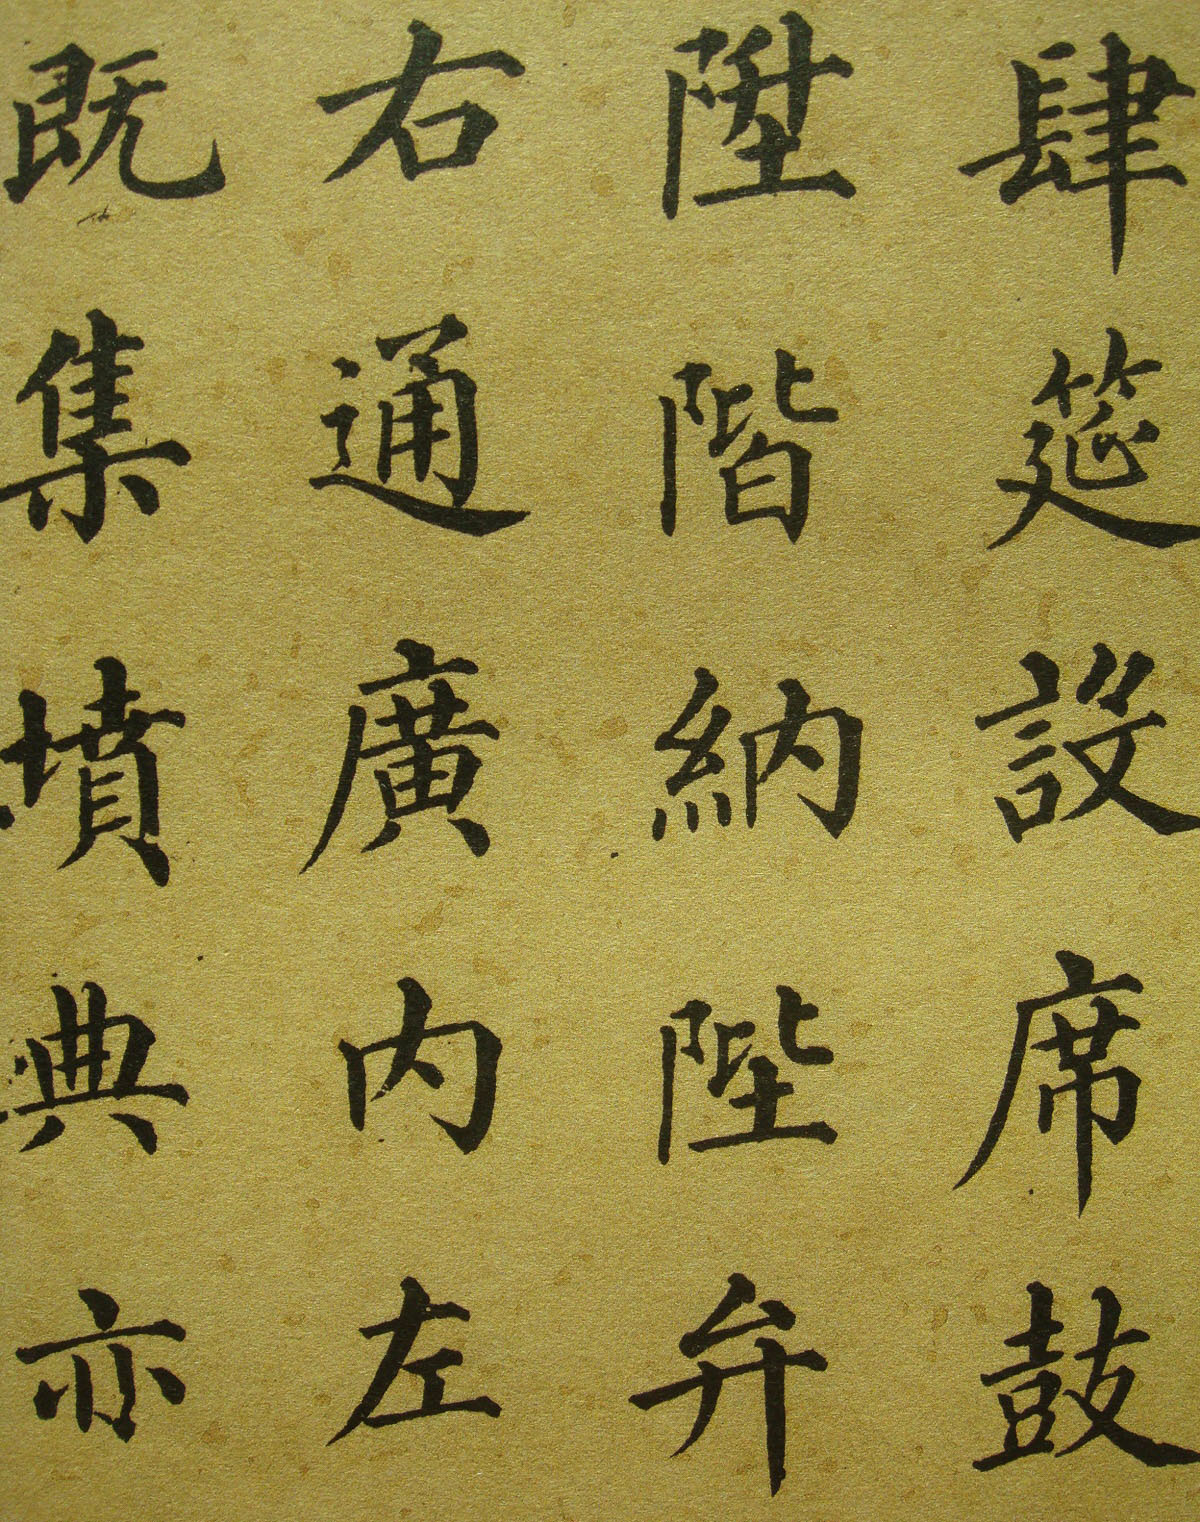 肆筵設席鼓
陞階納陛弁
右通廣内左
既集墳典亦